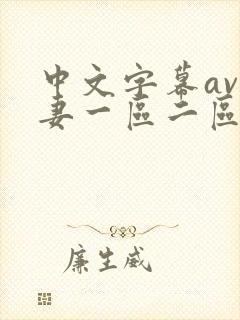 中文字幕av
妻一區二區
廉生威